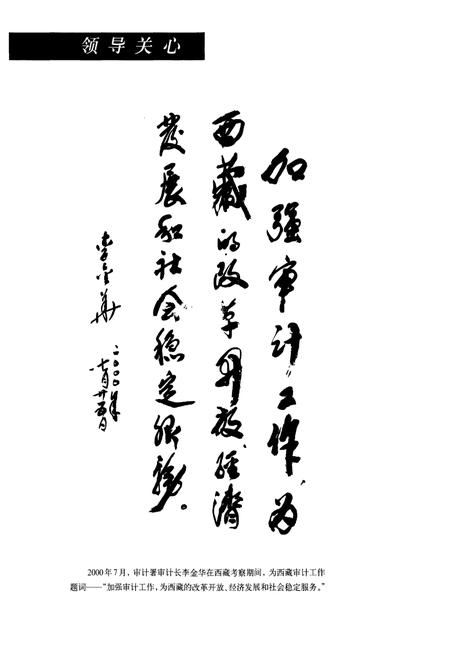 领导关心
加强审计工作,为
西藏的改革开放、经济
发展和社会稳定服务。
李金华
二〇〇〇年
七月廿五日
2000年7月,审计署审计长李金华在西藏考察期间,为西藏审计工作
题词——“加强审计工作,为西藏的改革开放、经济发展和社会稳定服务。”